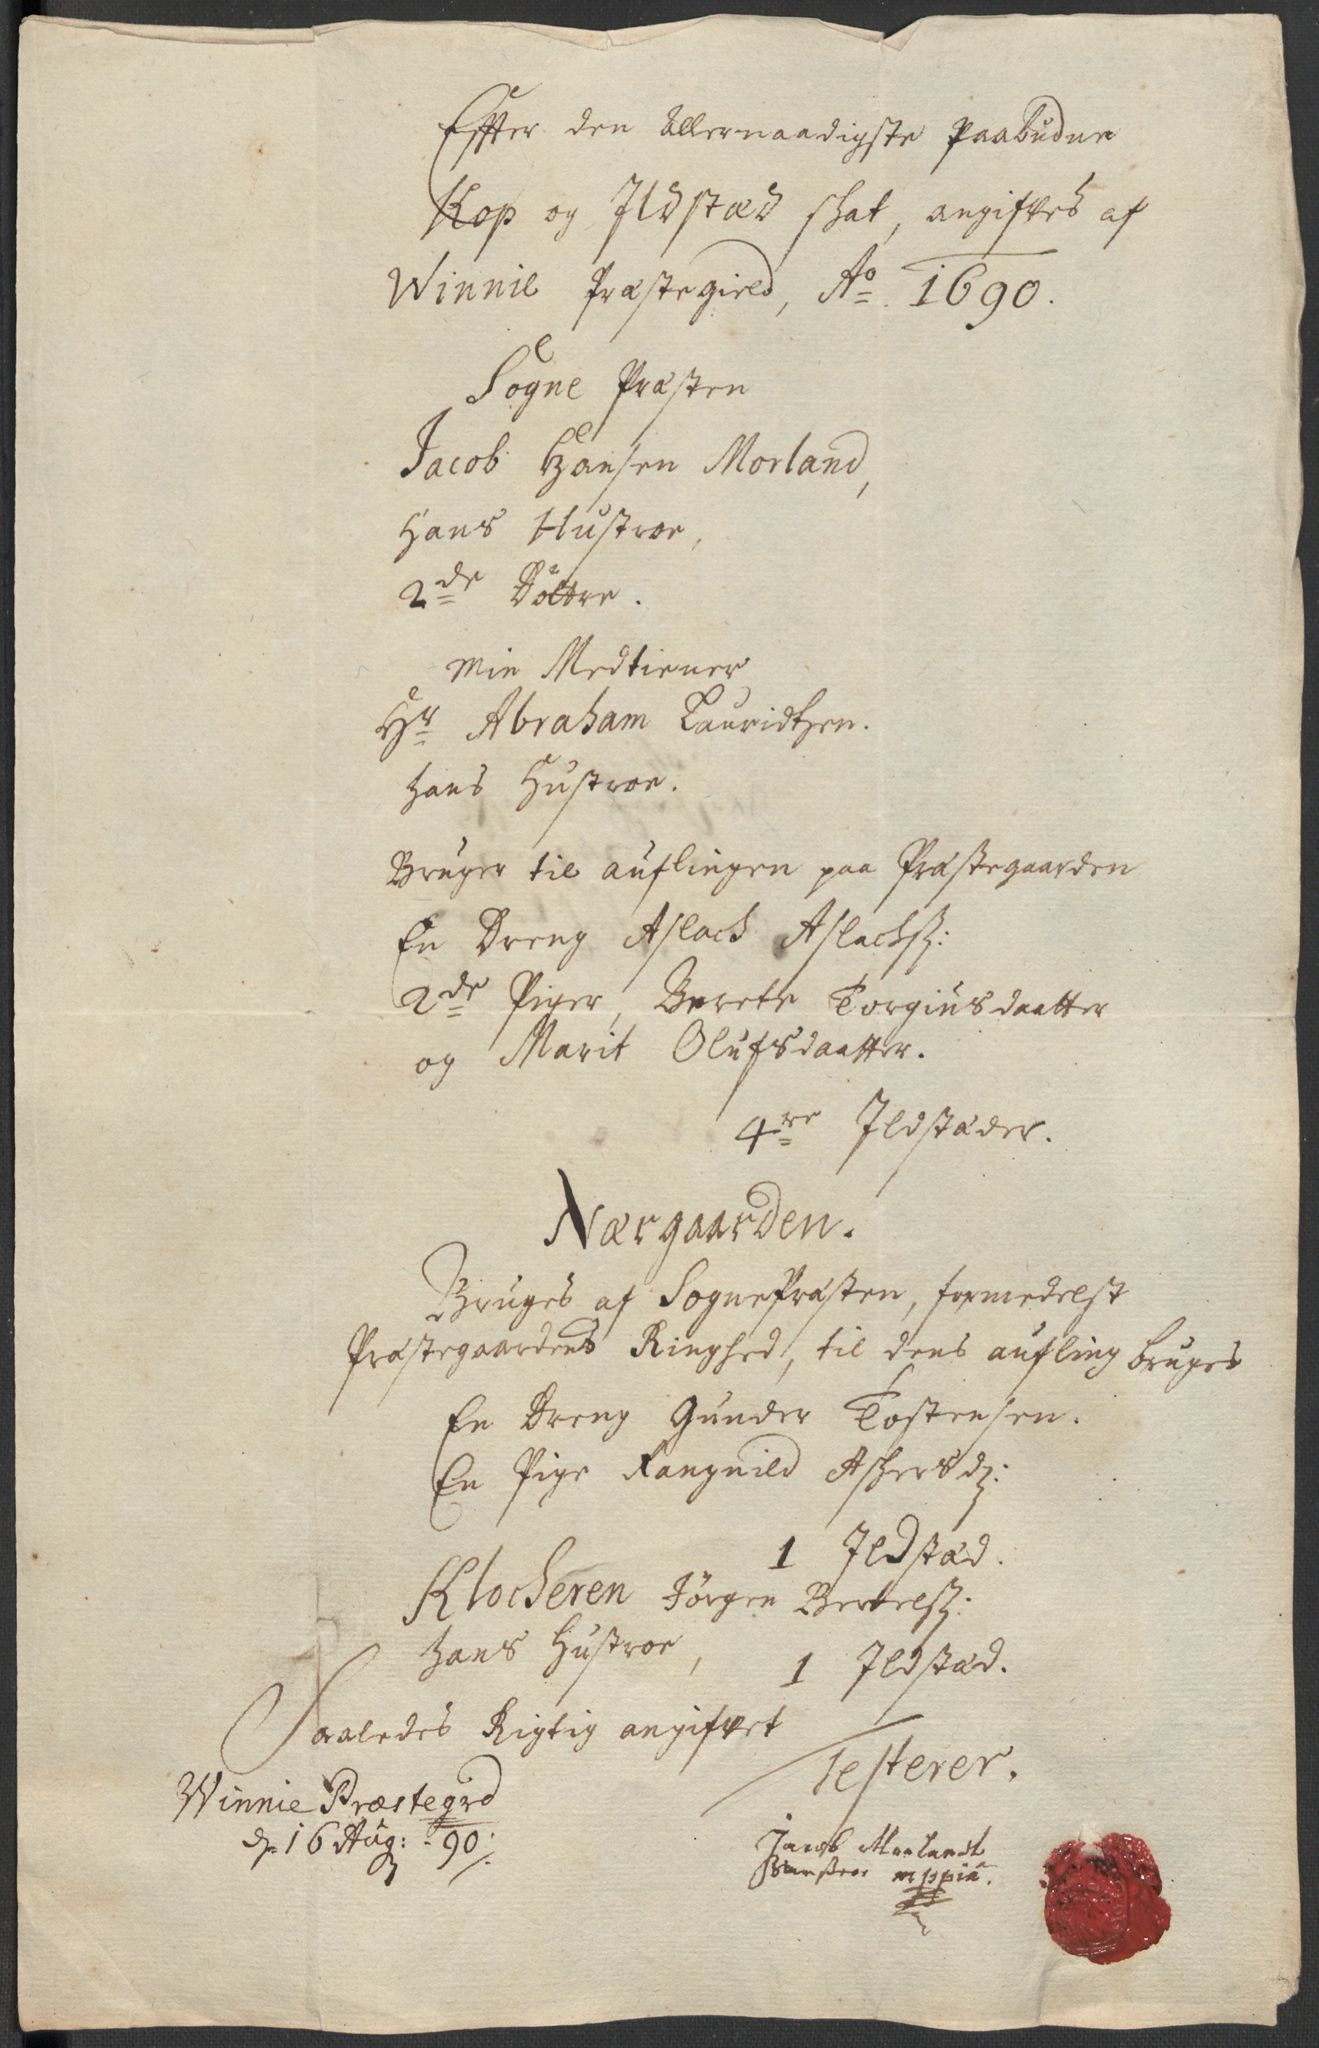 Effter den Allernaadigste Paabudne
Kop og Ildstæd skat, angifves af
Winnie Præstegield, Aº. 1690.
Sogne Præsten
Jacob Hansen Morland,
Hans Hustroe,
2de Döttre.
Min Medtiener
Hr Abraham Lauridtzen.
hans Hustroe.
Bruger til auflingen paa Præstegaarden
En Dreng Aslack Aslacks:
2de Piger, Berete Torgiusdaatter
og Marit Olufsdaatter.
4re Ildstæder.
Nærgaarden.
Bruges af SognePræsten, formedelst
Præstegaardens Ringhed, til dens aufling bruges
En Dreng Gunder Tostensen.
En Pige Rangnild Askersd:
1 Ildstæd.
Klockeren Jörgen Bertels:
hans Hustroe,
1 Ildstæd.
Saaledes Rigtig angifvet
Testerer.
Winnie Præstegrd
d. 16 Aug: 90:
Jacob Morlandt
mppia.